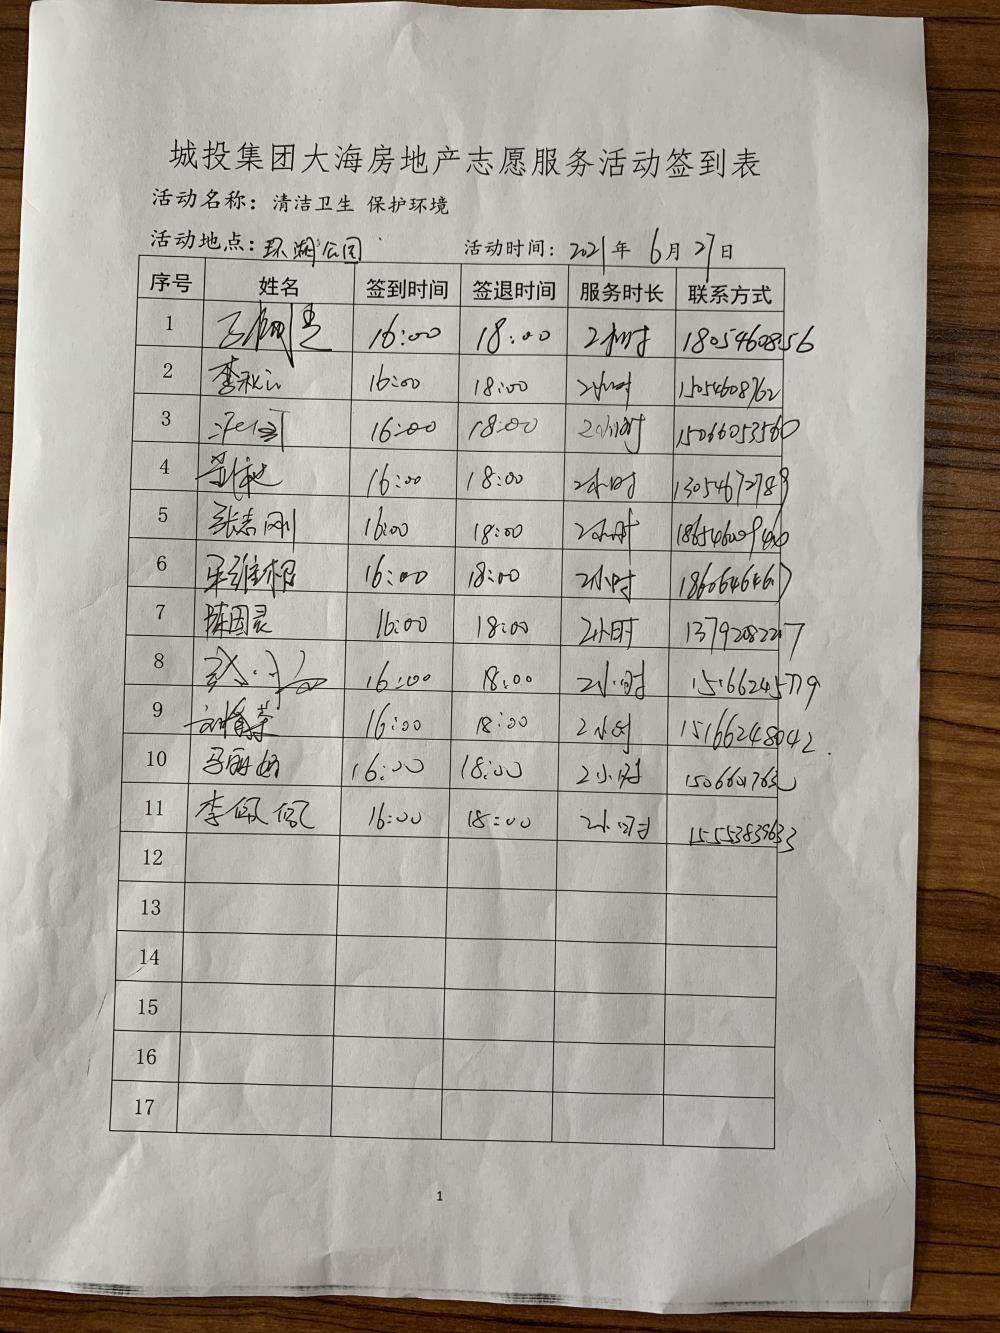 城投集团大海房地产志愿服务活动签到表
活动名称：清洁卫生 保护环境
活动地点：环湖公园 活动时间：2021年6月27日
序号 姓名 签到时间 签退时间 服务时长 联系方式
1 16:00 18:00 2小时 18054608156
2 16:00 18:00 2小时 15054608762
3 16:00 18:00 2小时 15066053560
4 16:00 18:00 2小时 13054672789
5 张志刚 16:00 18:00 2小时
6 16:00 18:00 2小时
7 陈国灵 16:00 18:00 2小时
8 16:00 18:00 2小时 15166245779
9 16:00 18:00 2小时 15166248042
10 马丽娟 16:00 18:00 2小时
11 李佩佩 16:00 18:00 2小时 15553839633
12
13
14
15
16
17
1